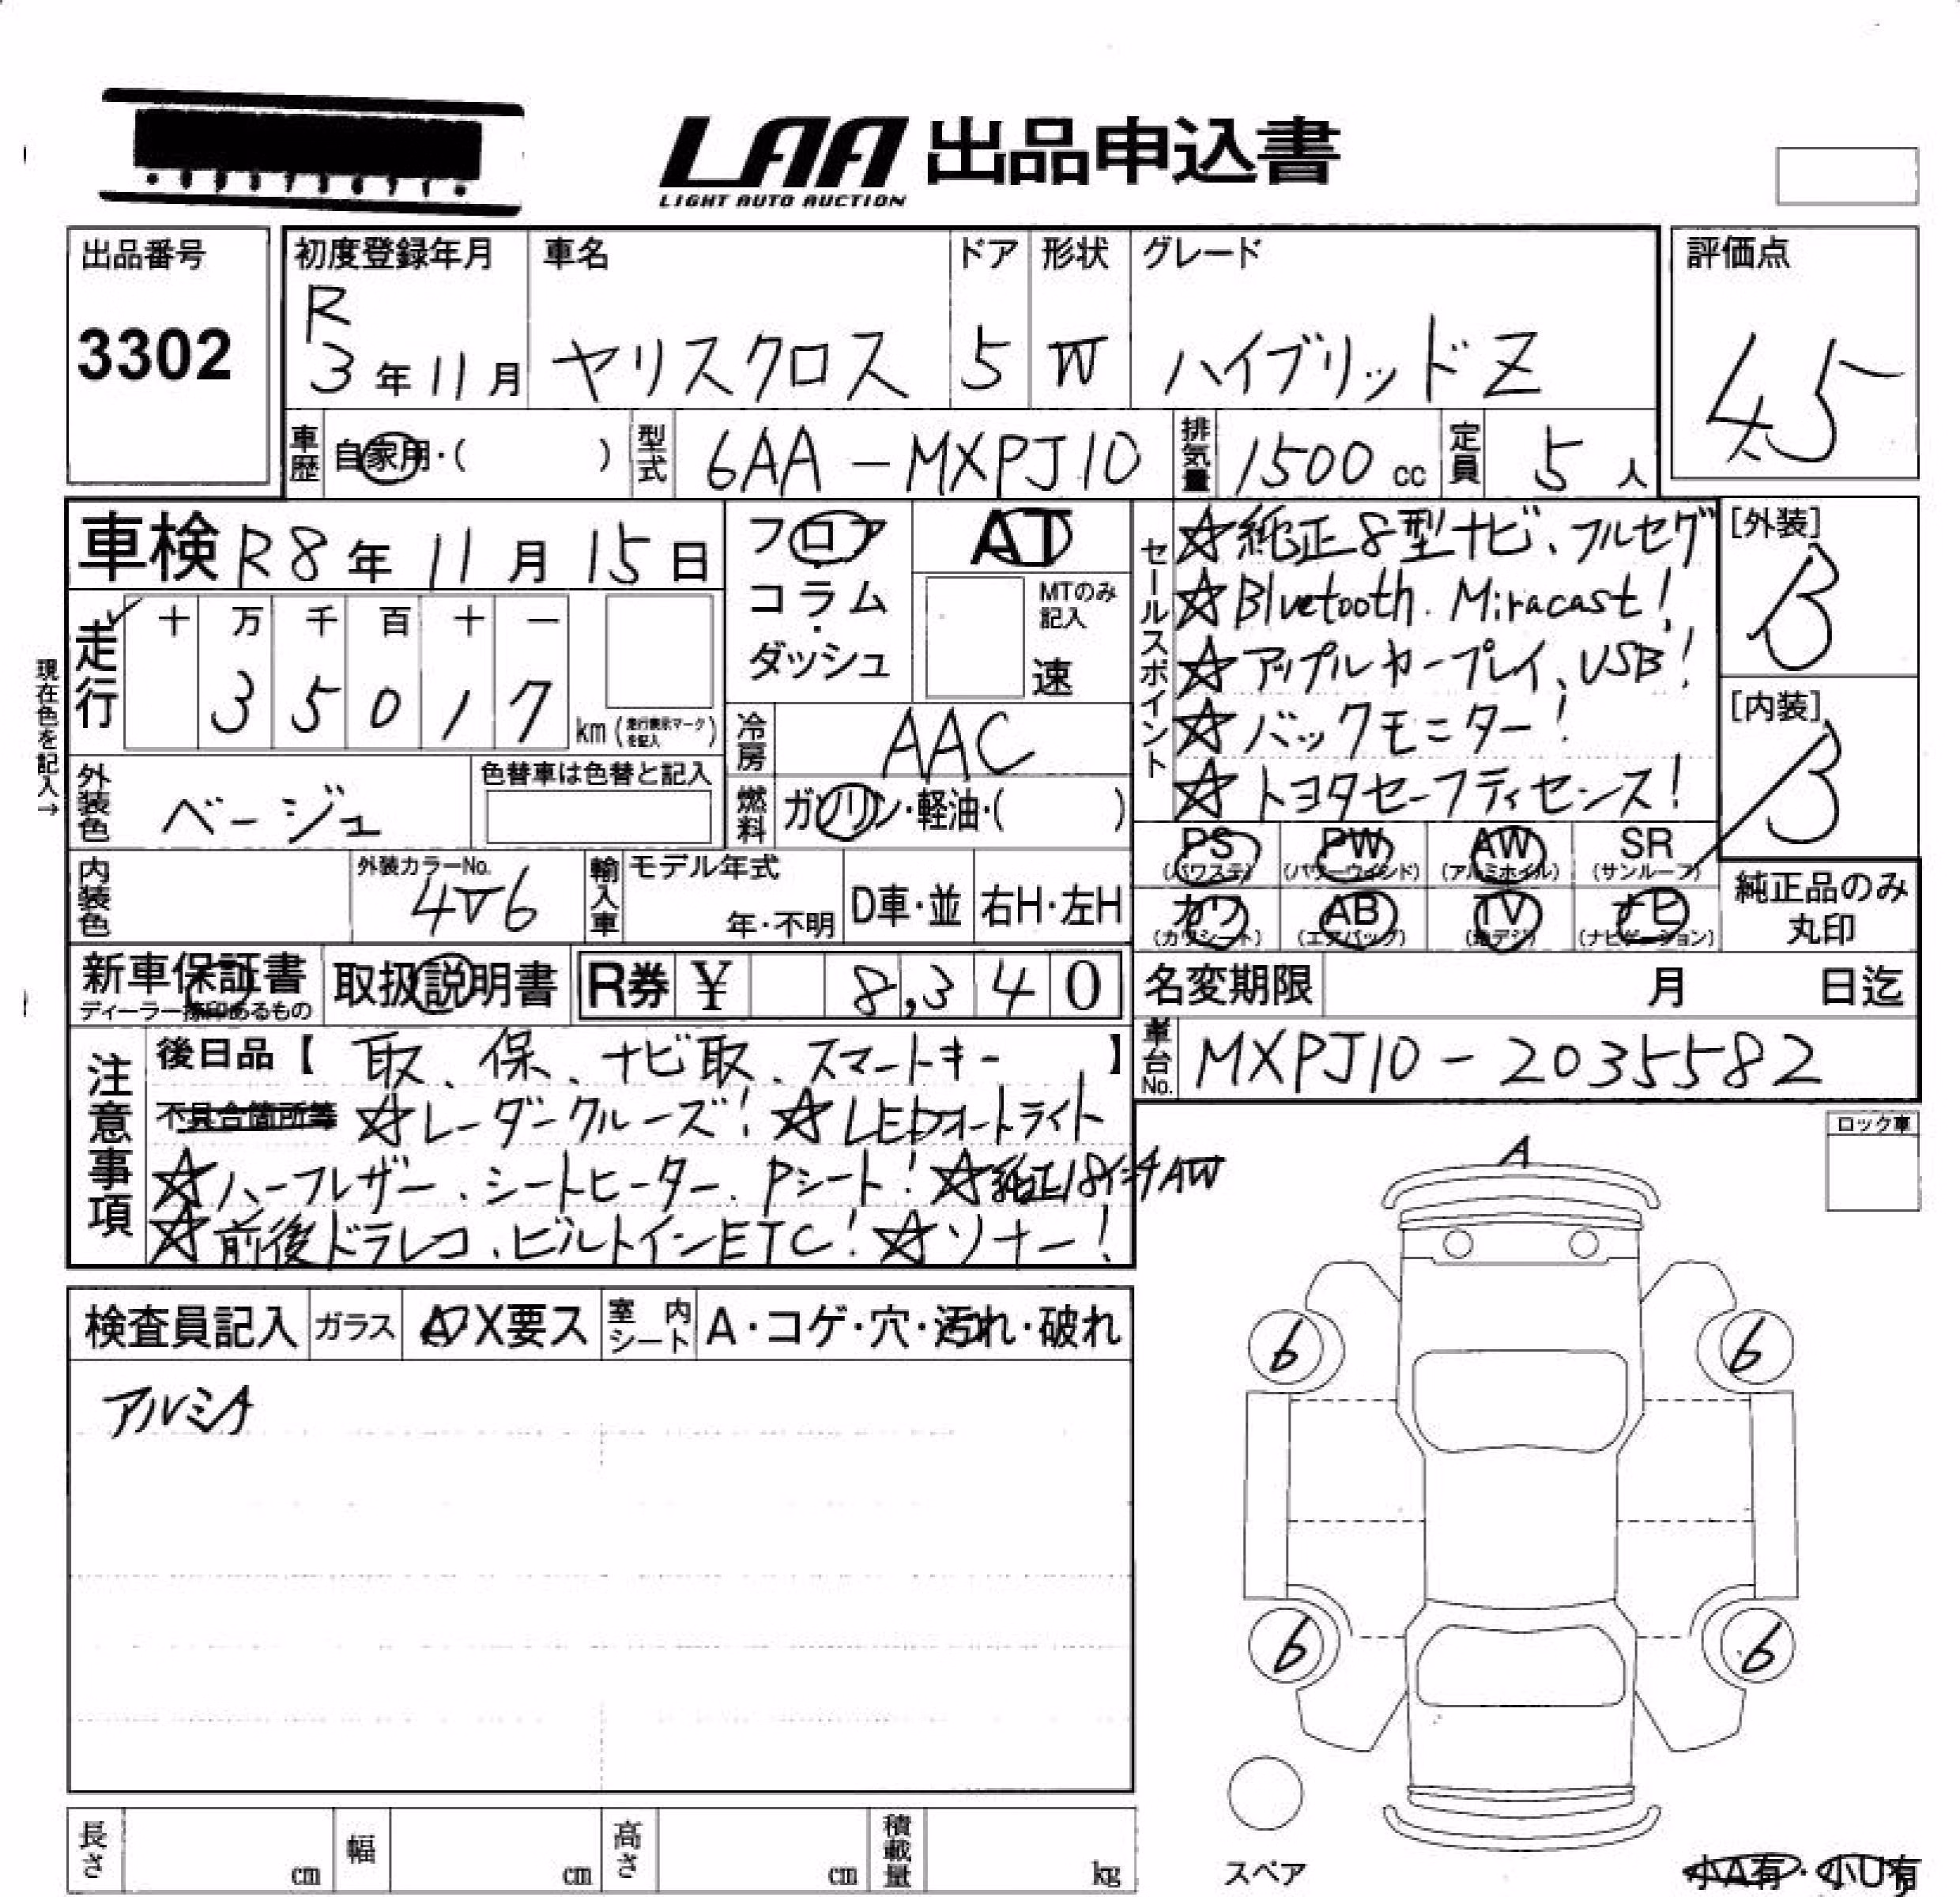 LAA 出品申込書
LIGHT AUTO AUCTION
出品番号
3302
初度登録年月
R
3年11月
車名
ヤリスクロス
ドア
5
形状
W
グレード
ハイブリッドZ
評価点
4.5
車歴
自家用・( )
型式
6AA-MXPJ10
排気量
1500 cc
定員
5人
車検 R8年 11月 15日
走行
十 万 千 百 十 一
3 5 0 1 7
km(走行表示マークを記入)
現在色を記入→
外装色
ベージュ
色替車は色替と記入
内装色
外装カラーNo.
4V6
輸入車
モデル年式
年・不明
D車・並
右H・左H
フロア
・
コラム
・
ダッシュ
AT
MTのみ記入
速
冷房
AAC
燃料
ガソリン・軽油・( )
セールスポイント
☆純正8型ナビ、フルセグ
☆Bluetooth. Miracast!
☆アップルカープレイ、USB!
☆バックモニター!
☆トヨタセーフティセンス!
[外装]
B
[内装]
B
PS (パワステ)
PW (パワーウィンド)
AW (アルミホイル)
SR (サンルーフ)
カワ (カワシート)
AB (エアバック)
TV (地デジ)
ナビ (ナビゲーション)
純正品のみ
丸印
新車保証書
ディーラー捺印あるもの
取扱説明書
R券 ¥ 8,340
名変期限 月 日迄
車台No.
MXPJ10-2035582
注意事項
後日品【 取、保、ナビ取、スマートキー 】
不具合箇所等 ☆レーダークルーズ!☆LEDオートライト
☆ハーフレザー、シートヒーター、Pシート!☆純正18インチAW
☆前後ドラレコ、ビルトインETC!☆ソナー!
ロック車
A
検査員記入
ガラス
A・X要ス
室内シート
A・コゲ・穴・汚れ・破れ
アルミA
6
6
6
6
スペア
小A有・小U有
長さ cm
幅 cm
高さ cm
積載量 kg